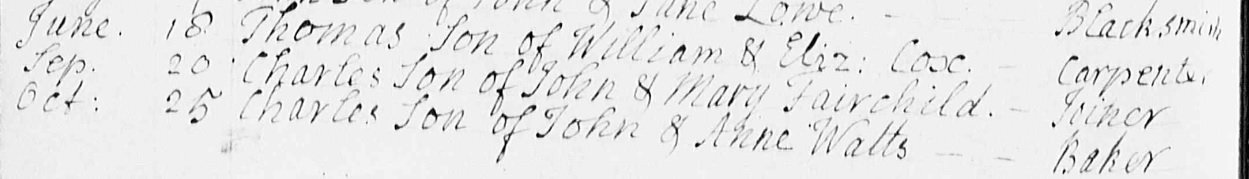 Son of John & Jane Lowe. - - Blacksmith
June. 18 Thomas Son of William & Eliz: Cox. - Carpenter
Sep. 20 Charles Son of John & Mary Fairchild. - Joiner
Oct: 25 Charles Son of John & Anne Watts - - Baker